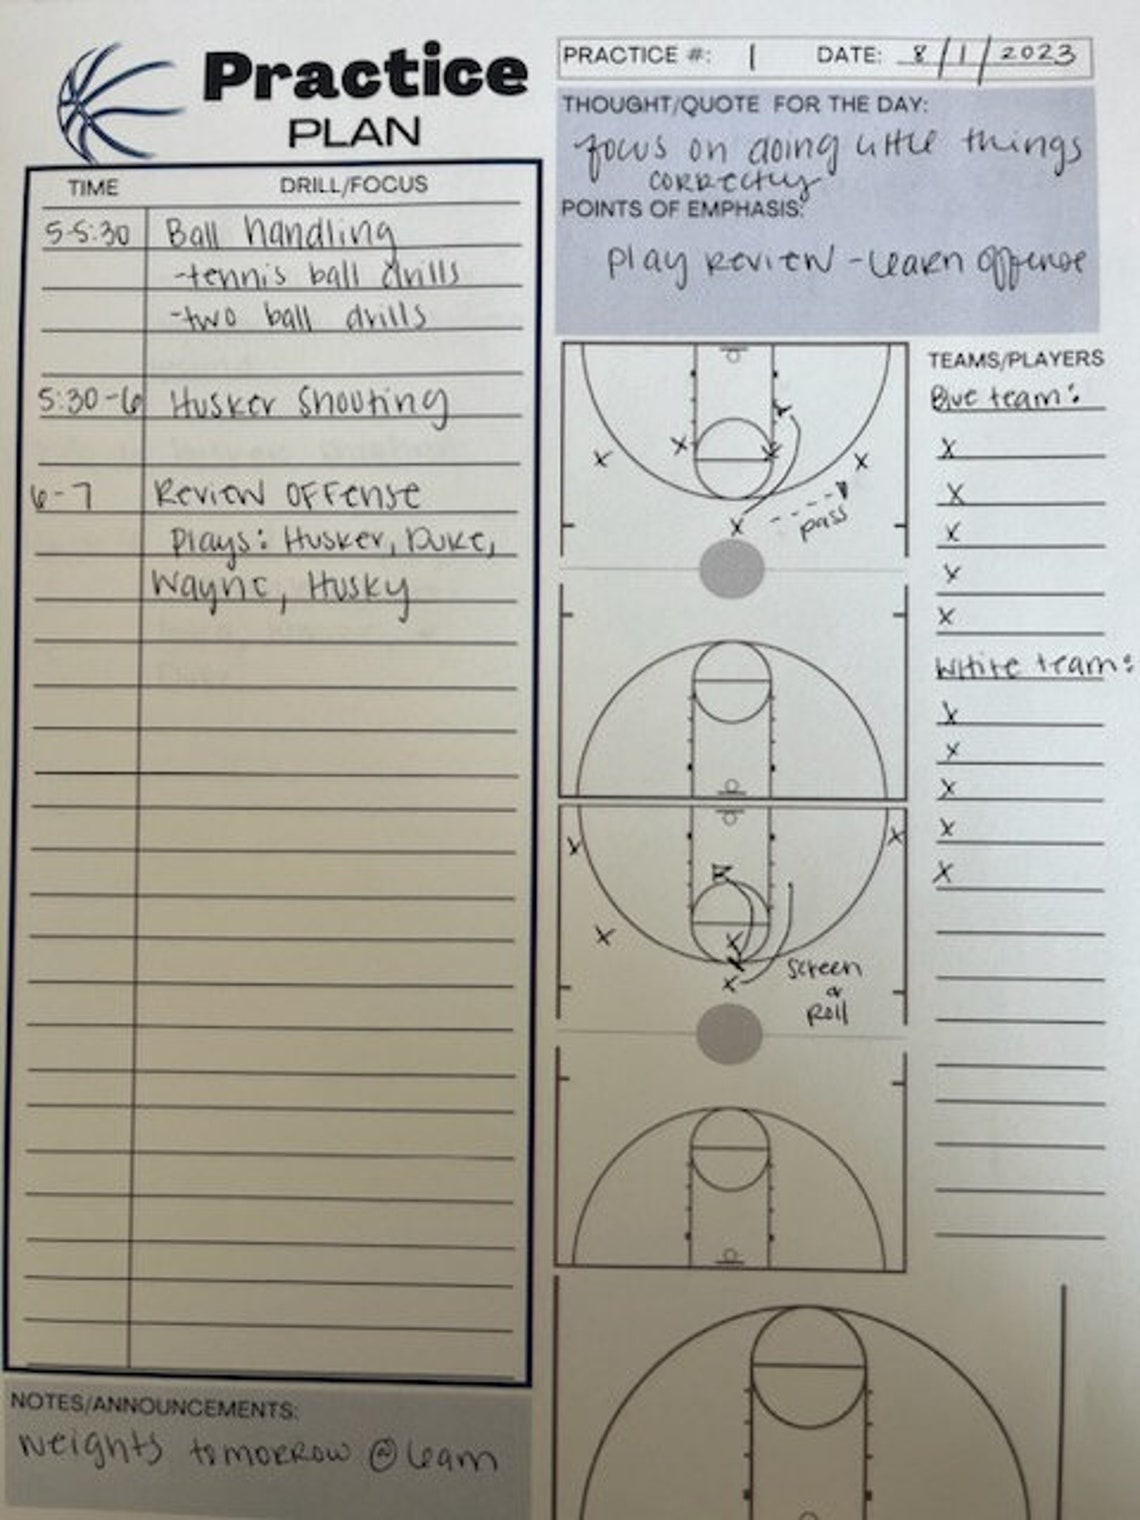 Practice
PLAN
PRACTICE #: 1 DATE: 8/1/2023
THOUGHT/QUOTE FOR THE DAY:
focus on doing little things
correctly
POINTS OF EMPHASIS:
play review - learn offense
TIME DRILL/FOCUS
5-5:30 Ball handling
-tennis ball drills
-two ball drills
5:30-6 Husker Shooting
6-7 Review OFFense
Plays: Husker, Duke,
Wayne, Husky
pass
Screen
or
Roll
TEAMS/PLAYERS
Blue team:
X
X
X
X
X
White team:
X
X
X
X
X
NOTES/ANNOUNCEMENTS:
weights tomorrow @ 6am